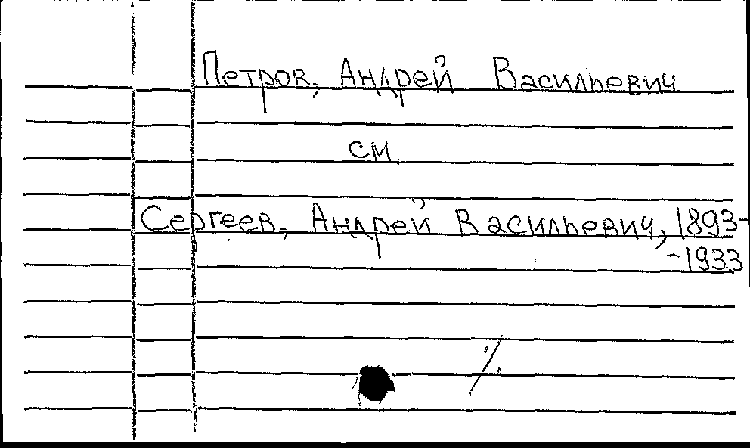 Петров, Андрей Васильевич
см
Сергеев, Андрей Васильевич, 1893-
-1933